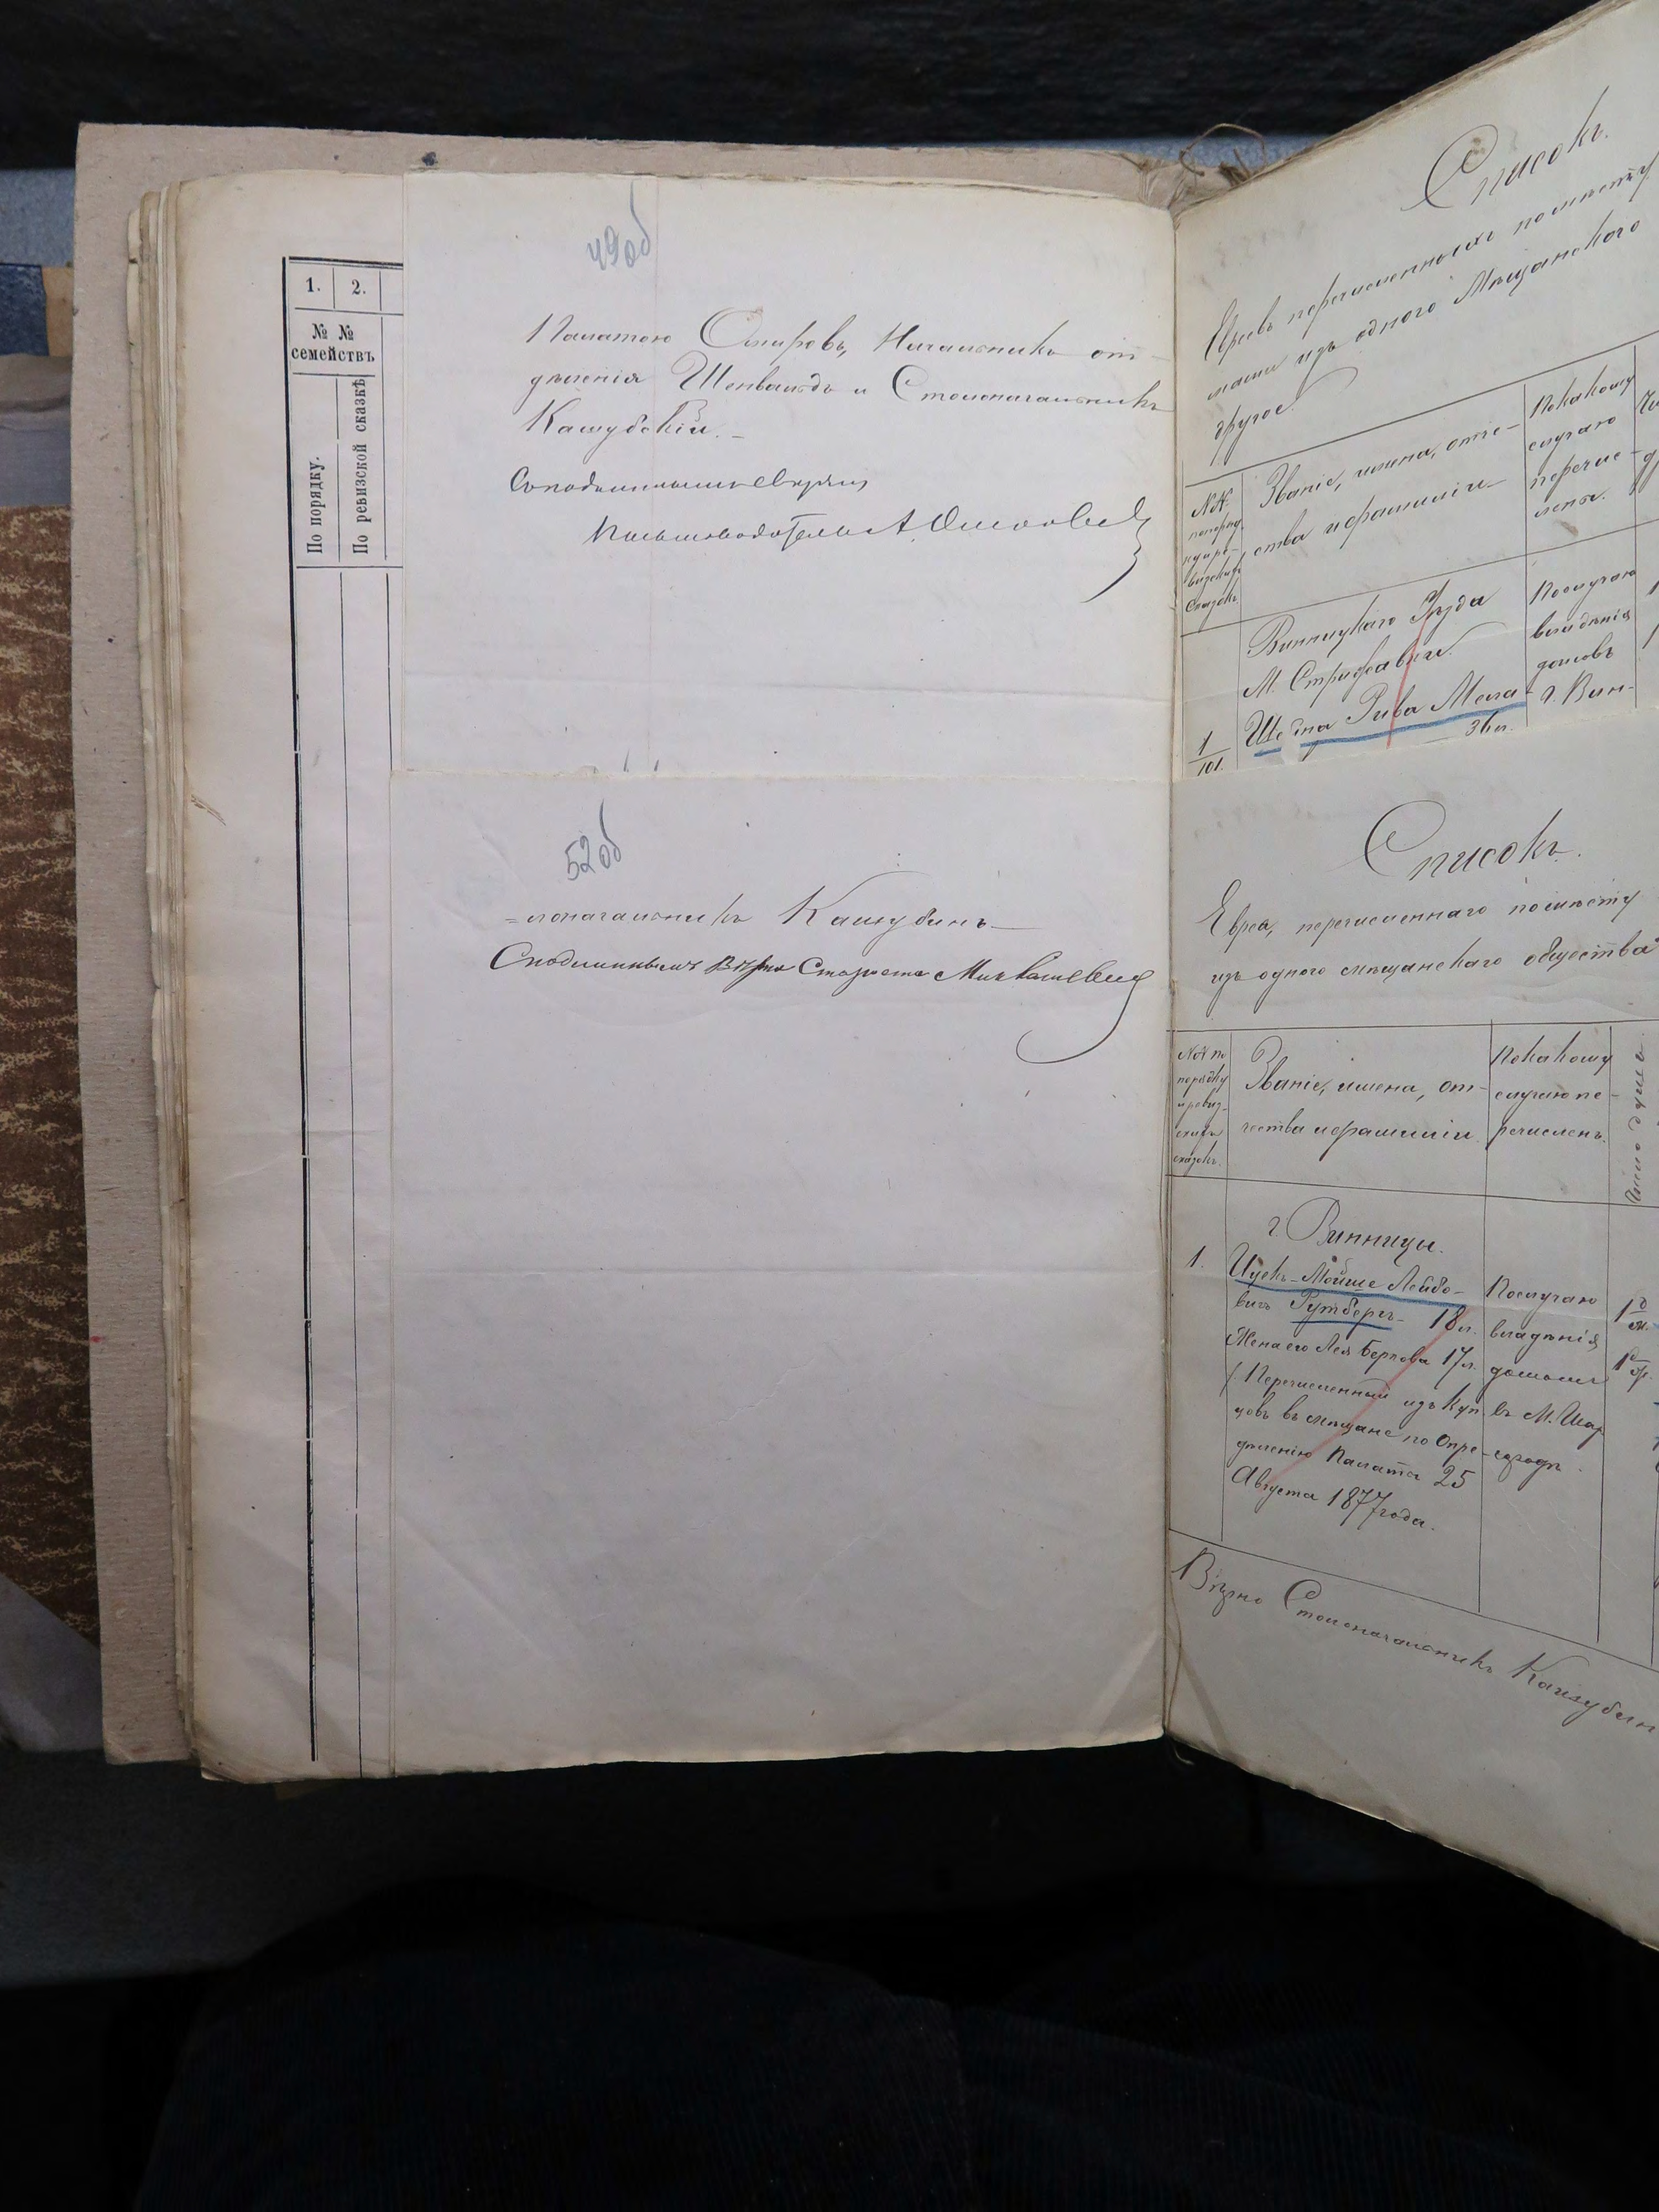 1. 2.
№ №
семействъ
По порядку.
По ревизской сказкѣ
49об
Палатою Смировъ, Начальникъ от-
дѣленія Шенвальдъ и Столоначальникъ
Кашубскій.
Съ подлиннымъ вѣрно
Письмоводитель А.
52об
=лоначальникъ Кашубинъ
Сподлиннымъ Вѣрно Староста
Списокъ.
Евреевъ перечисленныхъ по
изъ одного Мѣщанскаго
другое.
№№
Званіе, имена, отче-
ства и фамиліи
По какому
случаю
перечис-
лены.
Винницкаго Уѣзда
М. Стрижавки.
1
101.
Рива
36 л.
По случаю
владѣнія
домовъ
г. Вин-
Списокъ.
Еврея, перечисленнаго по
изъ одного мѣщанскаго общества
№№ по
порядку
и ревиз-
скихъ
сказокъ.
Званіе, имена, от-
чества и фамиліи.
По какому
случаю пе-
речисленъ.
Число душъ
г. Винницы.
1.
Ицекъ-Мойше Лейбо-
вичъ Рутбергъ 18 л.
Жена его Лея Беркова 17 л.
(Перечисленный изъ Куп
цовъ въ мѣщане по Опре-
дѣленію Палаты 25
Августа 1877 года.
По случаю
владѣнія
домомъ
въ М. Шар
городѣ.
Вѣрно Столоначальникъ Кашубин